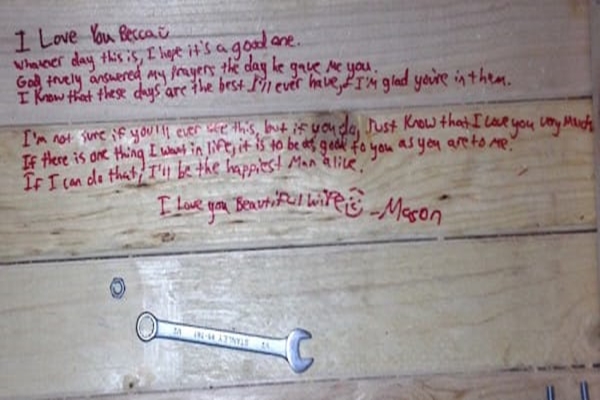 I Love You Becca ü
Whatever day this is, I hope it's a good one.
God truely answered my prayers the day he gave me you.
I know that these days are the best I'll ever have, & I'm glad you're in them.
I'm not sure if you'll ever see this, but if you do, Just know that I Love you very much.
If there is one thing I want in life, it is to be as good to you as you are to me.
If I can do that, I'll be the happiest man alive.
I Love you Beautiful Wife -Mason
1/2 STANLEY 1/2